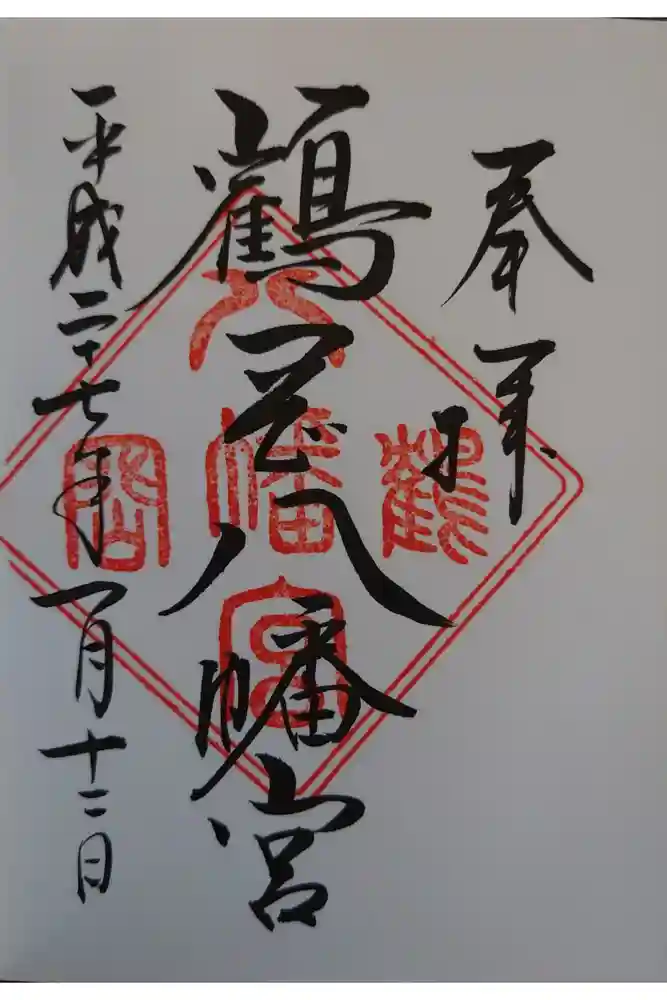 奉拝
鶴岡八幡宮
平成二十七年一月十二日
鶴
八幡宮
岡